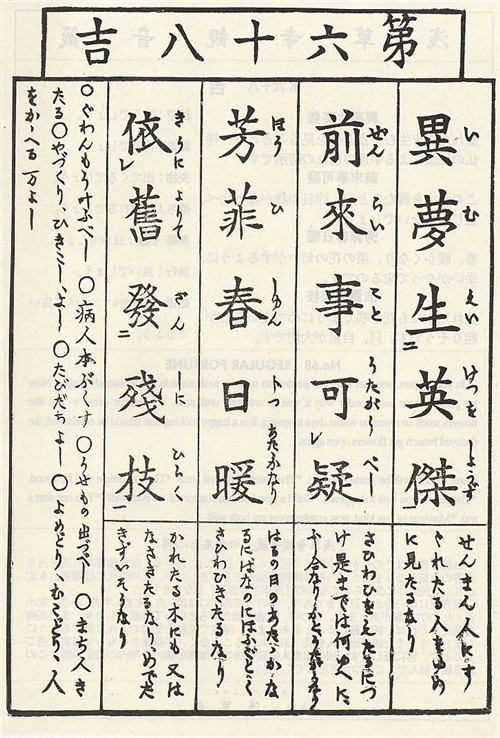 第六十八吉
異夢生英傑
いむ えい けつを しようず
せんまん人にす
ぐれたる人をゆめ
に見たるなり
前來事可疑
ぜん らい こと うたがふ べし
さひわひをえたるにつ
け是までは何ゆへに
ふ合なりしかとうたがふなり
芳菲春日暖
はう ひ しゆん じつ あたたかなり
はるの日のあたゝかな
るにはなのにほふごとく
さひわひきたるなり
依舊發殘枝
きうに よりて ざん しに ひらく
かれたる木にも又は
なさきたるなりめでた
きずいそうなり
〇ぐわんもうけふべし 〇病人本ぶくす 〇うせもの出づべし 〇まち人き
たる〇やづくり、ひきこし、よし 〇たびだちよし 〇よめとり むことり 人
をかゝへる 万よし